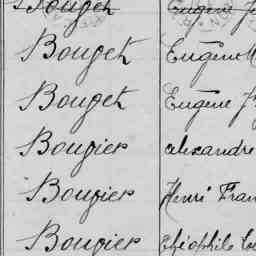 Bouget Eugène
Bouget Eugène
Bouget Eugène
Bougier alexandre
Bougier Henri Fran
Bougier théophile